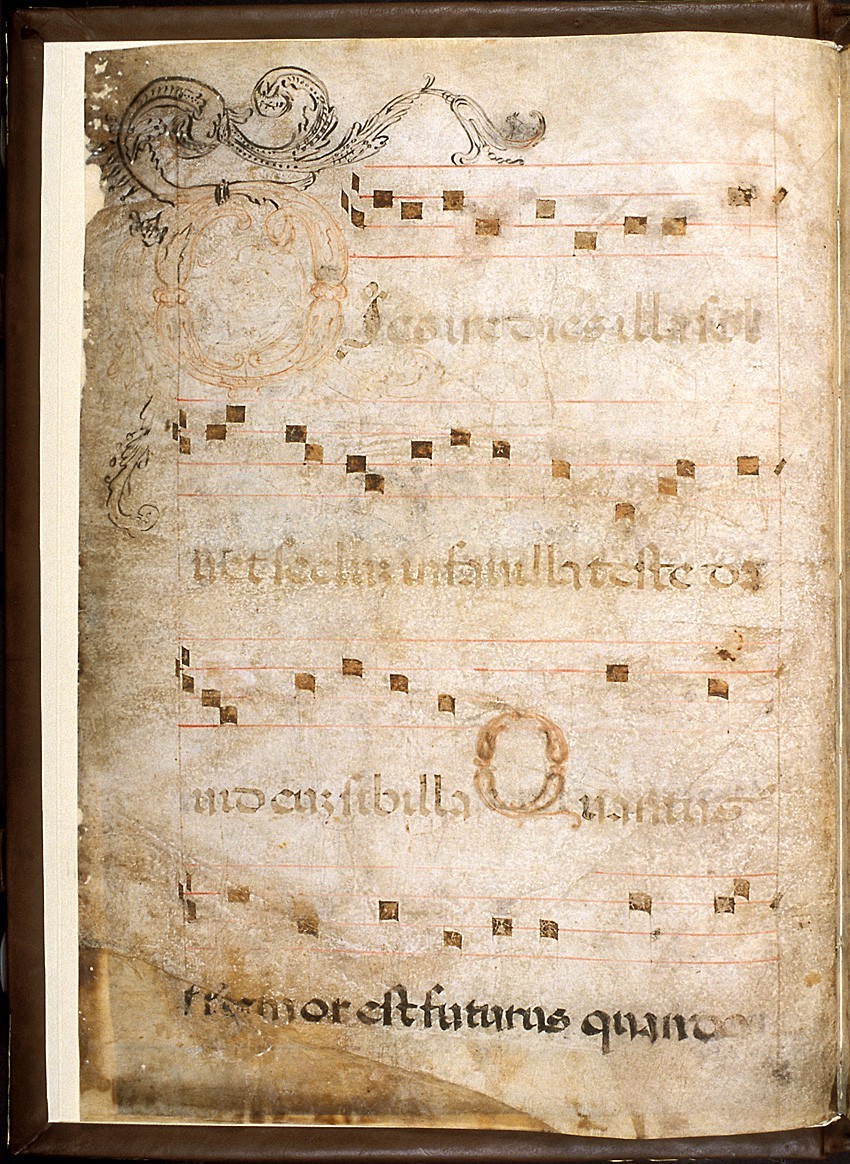 Dies ire dies illa sol
uet secluz in fauilla teste da
uid cuz sibilla Quantus
tremor est futurus quando